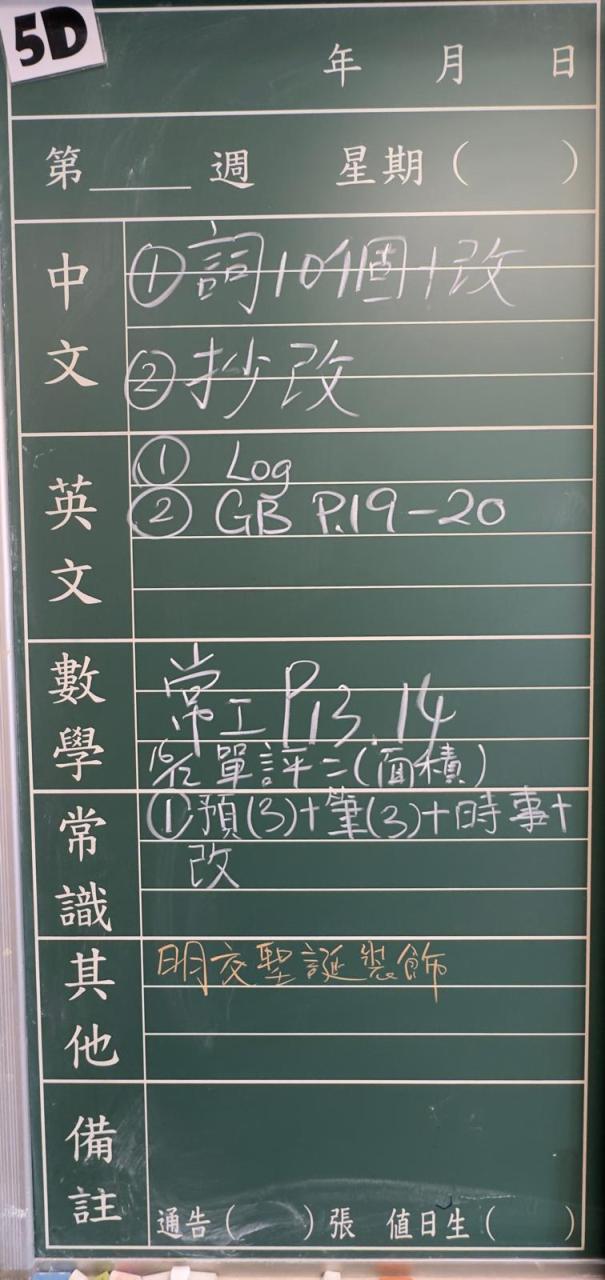 5D
年 月 日
第 週 星期( )
中文
①詞10個+改
②抄改
英文
① Log
② GB P.19-20
數學
常工 P13.14
16/12 單評二(面積)
常識
①預(3)+筆(3)+時事+
改
其他
明交聖誕裝飾
備註
通告( )張 值日生( )